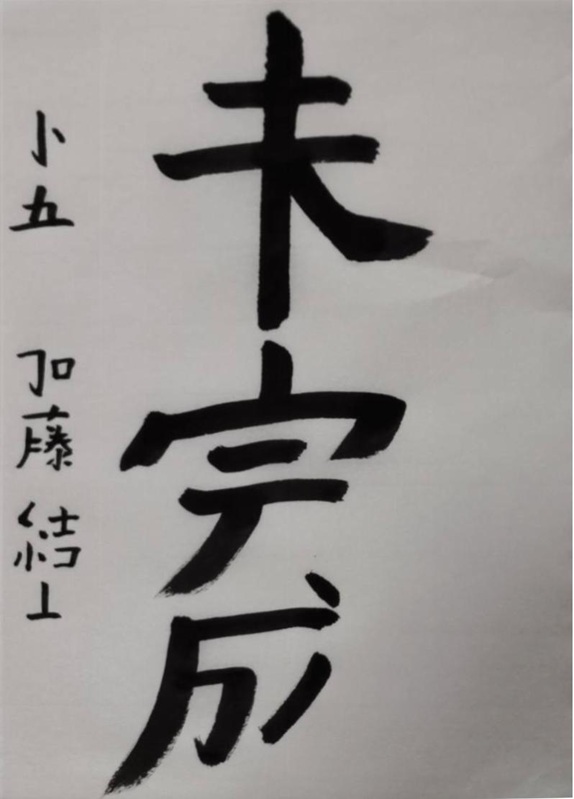 未完成
小五 加藤結